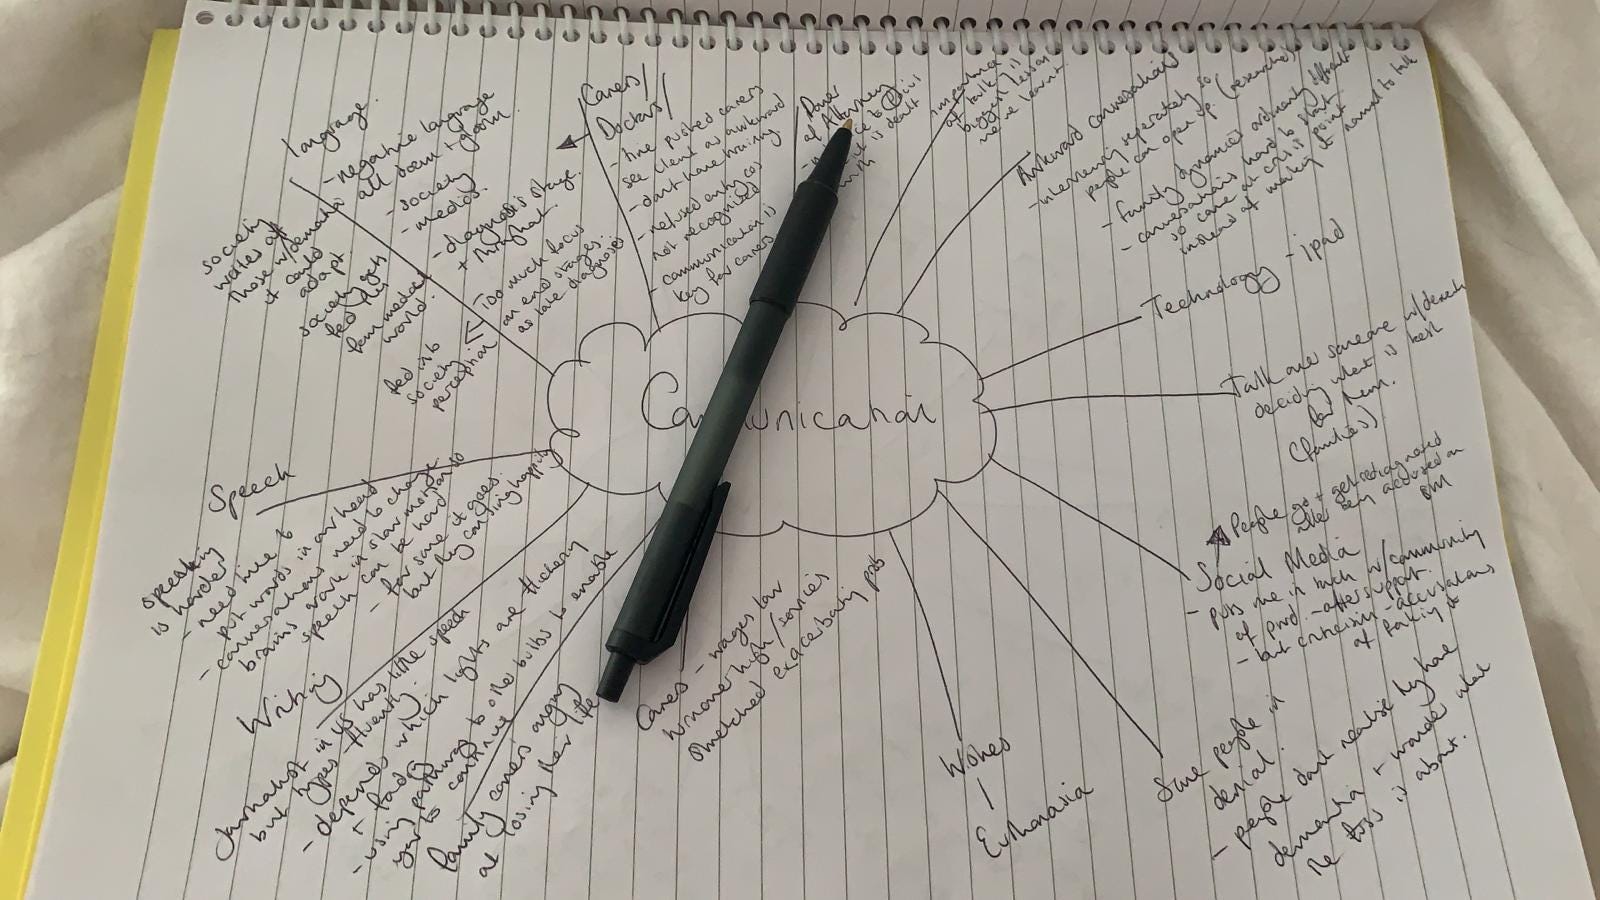 Communication
language.
- negative language
all doesn't
- society
- media.
society
worries
those w/dementia
it could
adapt
society gets
fed this
world.
- diagnosis stage.
- Too much focus
on end stages.
as late diagnosis
fed into
society
perception
Carers/
Doctors/
- time pushed carers
see client as awkward
- dont have training
- refused entry cos
not recognised
- communication is
key for carers
Power
of Attorney
what is dealt
importance
of talk is
biggest lesson
we've learnt.
Awkward conversations
- interviewing seperately so
people can open up. (researcher)
- family dynamics ordinarily difficult
- conversations hard to start
so come at crisis point
instead of making it normal to talk
Technology - ipad
Talk over someone w/dementia
deciding what is best
for them.
(families)
People go + get rediagnosed
after being accused on
SM
Social Media
- puts me in touch w/ community
of pwd. - offers support.
- but criticism - accusations
of faking it
Some people in
denial.
- people dont realise they have
dementia + wonder what
the fuss is about.
Wishes
Euthanasia
Carers - wages low
turnover high/services
stretched exacerbating prob
Family carers angry
at losing their life
Writing
Journalist in US has little speech
but types fluently.
- depends which lights are flickery
+ fading
- using pathways to other bulbs to enable
you to continue
Speech
speaking
is harder
- need time to
put words in our head
- conversations need to change
brains work in slow motion so
speech can be hard
- for some it goes.
but they can sing happily